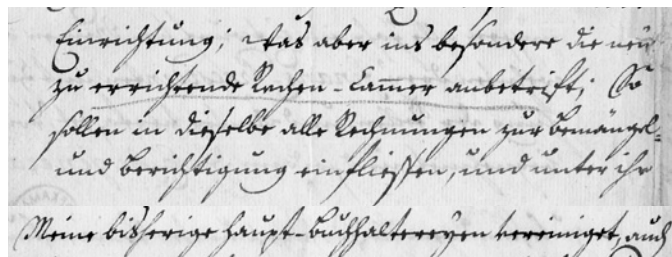 Einrichtung; Was aber ins besondere die neu
zu errichtende Rechen-Cammer anbetrift; So
sollen in dieselbe alle Rechnungen zur Bemängel-
und Berichtigung einfliessen, und unter ihr
Meine bisherige Haupt-Buchhaltereyen vereiniget, auch